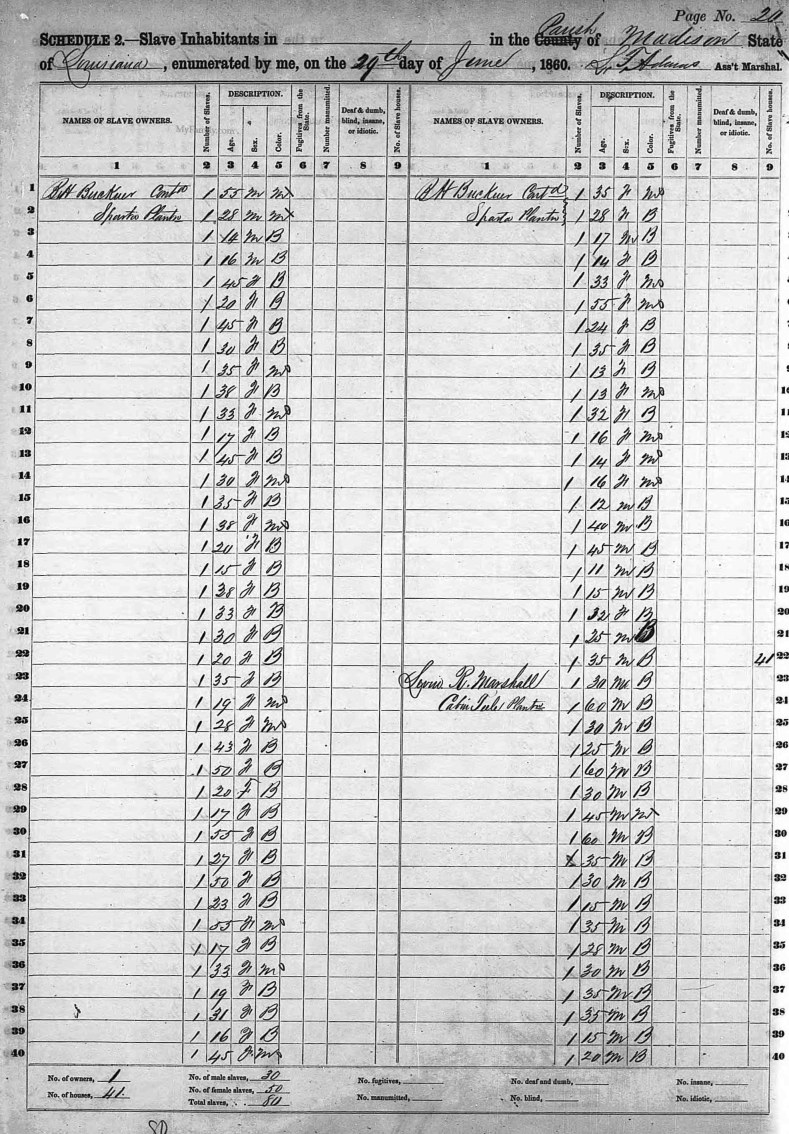 Page No. 20
SCHEDULE 2.—Slave Inhabitants in in the County Parish of Madison State
of Louisiana, enumerated by me, on the 29th day of June, 1860. S. T. Adams Ass't Marshal.
NAMES OF SLAVE OWNERS. Number of Slaves. DESCRIPTION. Age. Sex. Color. Fugitives from the State. Number manumitted. Deaf & dumb, blind, insane, or idiotic. No. of Slave houses.
1 2 3 4 5 6 7 8 9
1 B H Buckner Contd 1 55 M M
2 Sparta Plantn 1 28 M M
3 1 14 M B
4 1 16 M B
5 1 45 F B
6 1 20 F B
7 1 45 F B
8 1 30 F B
9 1 35 F M
10 1 38 F B
11 1 33 F M
12 1 17 F B
13 1 45 F B
14 1 30 F M
15 1 35 F B
16 1 38 F M
17 1 20 F B
18 1 15 F B
19 1 38 F B
20 1 33 F B
21 1 30 F B
22 1 20 F B
23 1 35 F B
24 1 19 F M
25 1 28 F M
26 1 43 F B
27 1 50 F B
28 1 20 F B
29 1 17 F B
30 1 55 F B
31 1 27 F B
32 1 50 F B
33 1 23 F B
34 1 55 F M
35 1 17 F B
36 1 33 F M
37 1 19 F B
38 1 31 F B
39 1 16 F B
40 1 45 F M
NAMES OF SLAVE OWNERS. Number of Slaves. DESCRIPTION. Age. Sex. Color. Fugitives from the State. Number manumitted. Deaf & dumb, blind, insane, or idiotic. No. of Slave houses.
1 2 3 4 5 6 7 8 9
B H Buckner Contd 1 35 F M 1
Sparta Plantn 1 28 F B 2
1 17 M B 3
1 14 F B 4
1 33 F M 5
1 55 F M 6
1 24 F B 7
1 35 F B 8
1 13 F B 9
1 13 F M 10
1 32 F B 11
1 16 F M 12
1 14 F M 13
1 16 F M 14
1 12 M B 15
1 40 M B 16
1 45 M B 17
1 11 M B 18
1 15 M B 19
1 32 F B 20
1 25 M B 21
1 35 M B 41 22
Levin R. Marshall 1 30 M B 23
Cabin Teele Plantn 1 60 M B 24
1 30 M B 25
1 25 M B 26
1 60 M B 27
1 30 M B 28
1 45 M M 29
1 60 M B 30
1 35 M B 31
1 30 M B 32
1 15 M B 33
1 35 M B 34
1 28 M B 35
1 30 M B 36
1 35 M B 37
1 35 M B 38
1 15 M B 39
1 20 M B 40
No. of owners, 1 No. of male slaves, 30 No. fugitives, No. deaf and dumb, No. insane,
No. of houses, 41 No. of female slaves, 50 No. manumitted, No. blind, No. idiotic,
Total slaves, 80
80